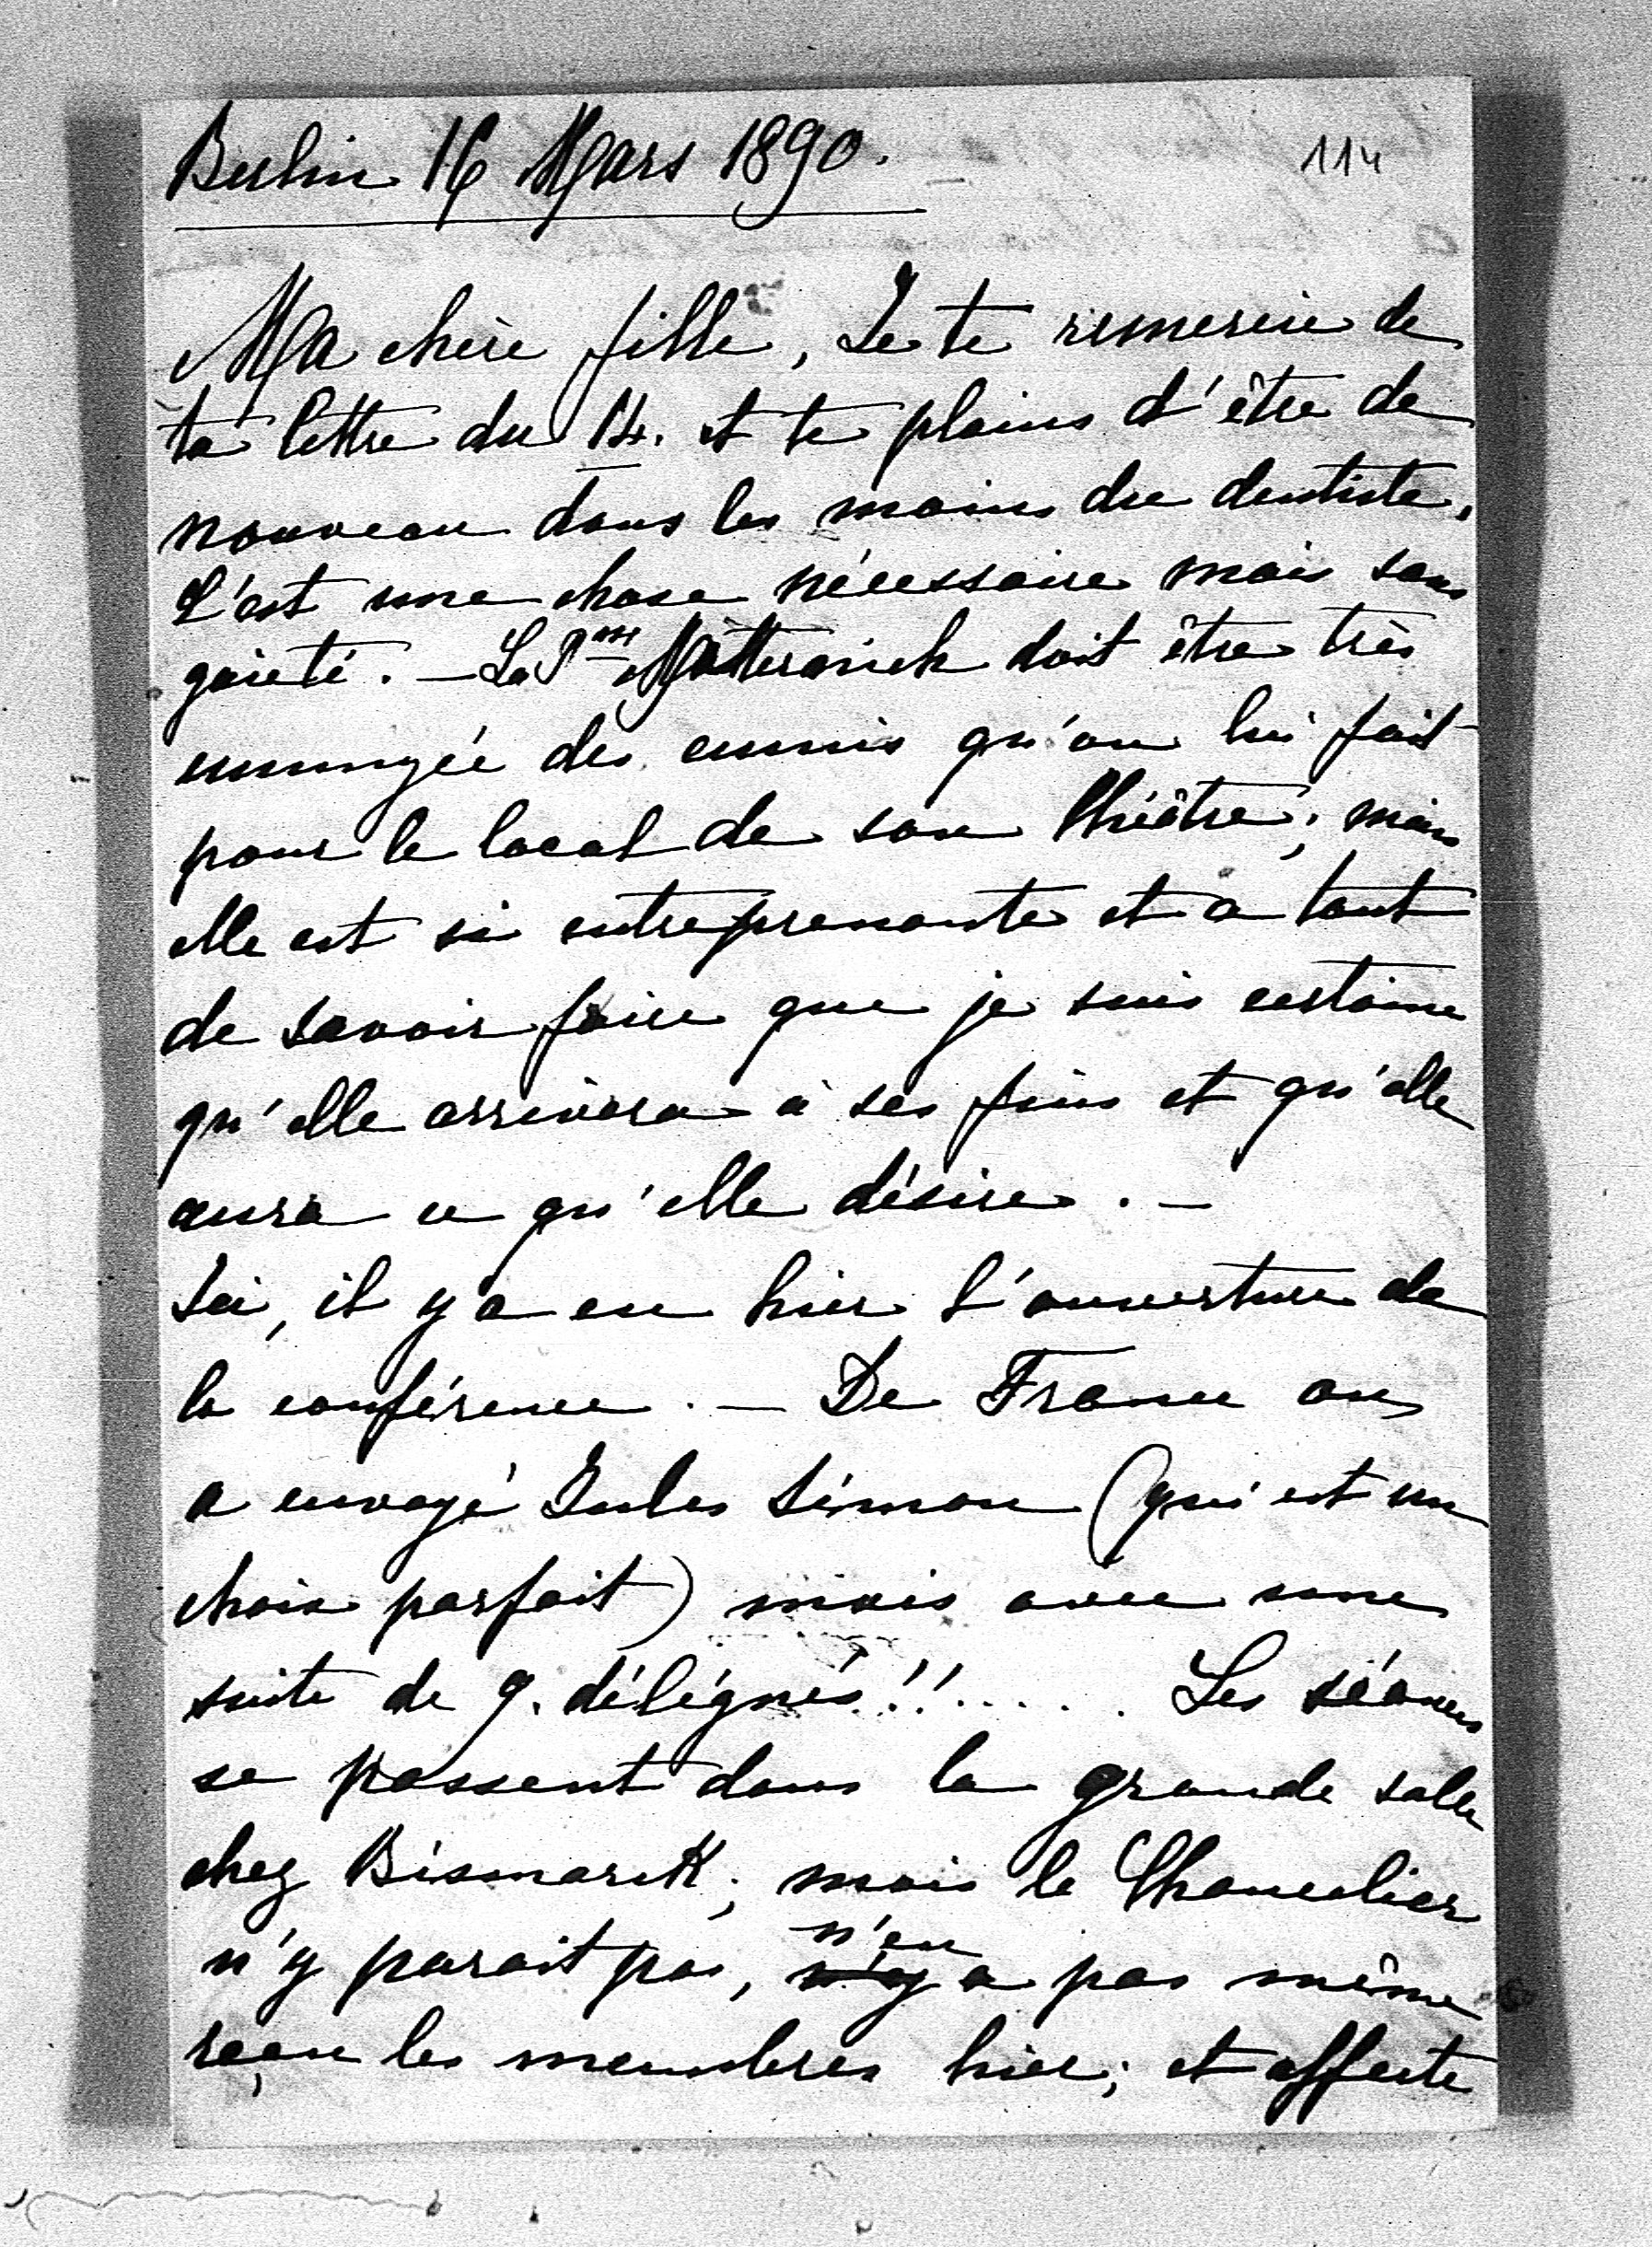 Berlin 16 Mars 1890.
114
Ma chère fille, Je te remercie de
ta lettre du 14. et te plains d'être de
nouveau dans les mains du dentiste.
C'est une chose nécessaire mais sans
gaieté. — La Psse Metternich doit être très
ennuyée des ennuis qu'on lui fait
pour le local de son théâtre; mais
elle est si entreprenante et a tant
de savoir faire que je suis certaine
qu'elle arrivera à ses fins et qu'elle
aura ce qu'elle désire. —
Ici, il y a eu hier l'ouverture de
la conférence. — De France on
a envoyé Jules Simon (qui est un
choix parfait) mais avec une
suite de 9. délégués!! . . . . . Les séances
se passent dans la grande salle
chez Bismarck; mais le Chancelier
n'y parait pas, n'en a pas même
reçu les membres hier; et affecte